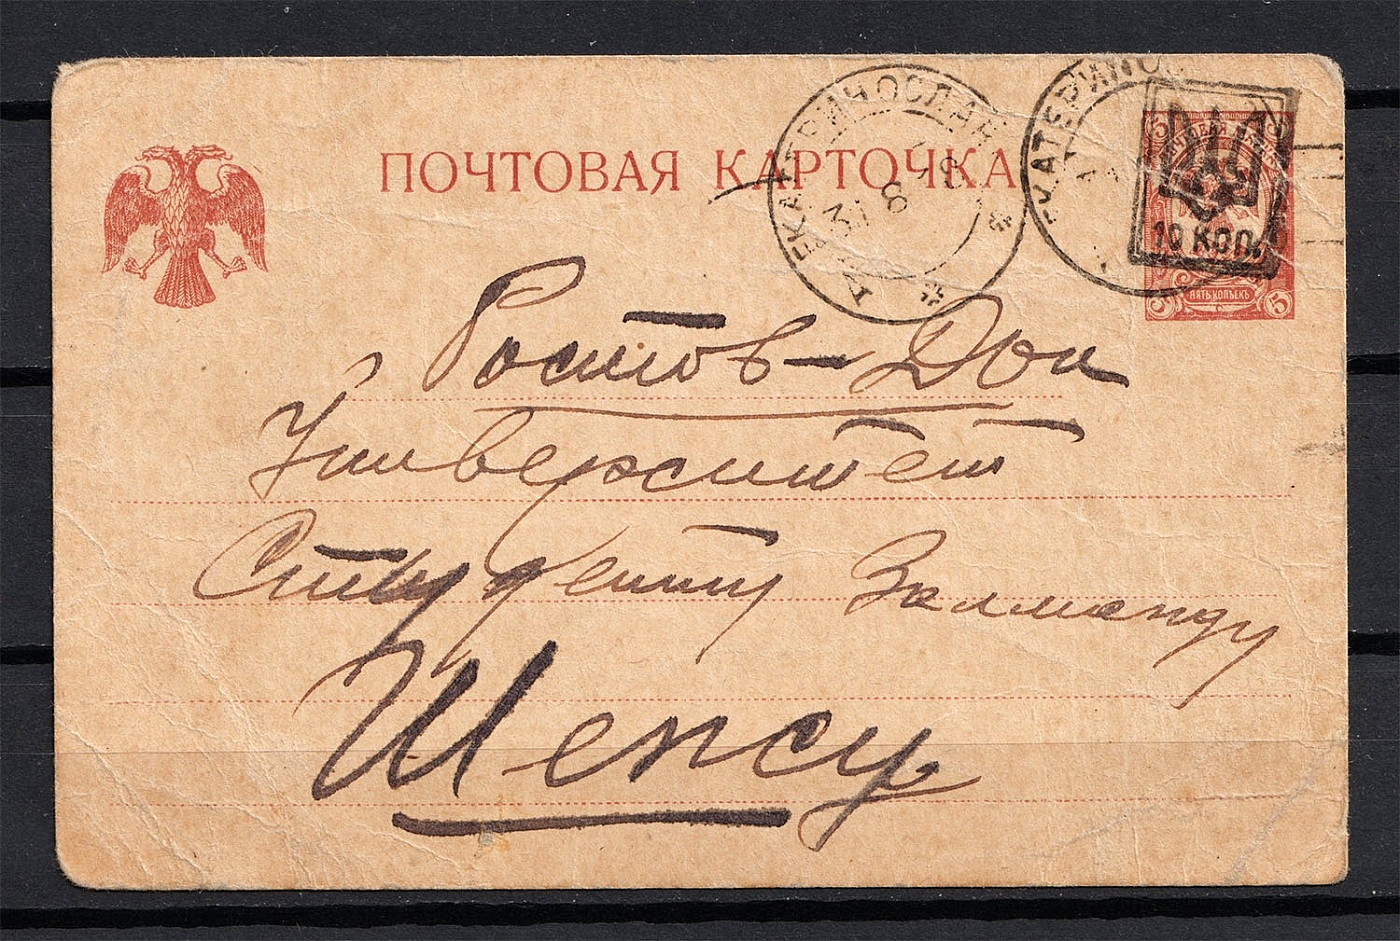 ПОЧТОВАЯ КАРТОЧКА
ЕКАТЕРИНОСЛАВ
31 8 18
ЕКАТЕРИНО
10 коп.
ПЯТЬ КОПѢЕКЪ
5
Ростов-Дон
Университет
Студенту Залманду
Шенсу